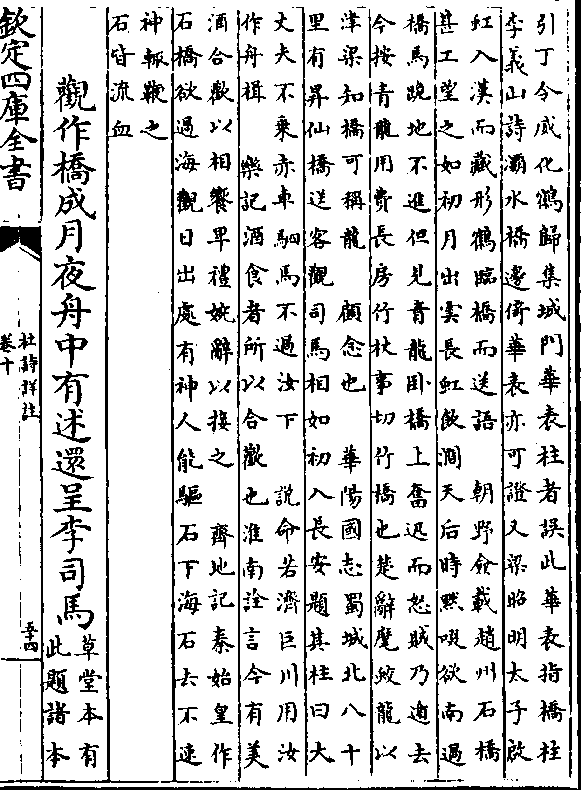 引丁令威化鶴歸集城門華表柱者誤此華表指橋柱
李義山詩灞水橋邊倚華表亦可證又梁昭明太子啟
虹入漢而藏形鶴臨橋而送語 朝野僉載趙州石橋
甚工望之如初月出雲長虹飲澗天后時黙啜欲南過
橋馬跪地不進但見青龍卧橋上奮迅而怒賊乃遁去
今按青龍用費長房行杖事切竹橋也楚辭麾蛟龍以
津梁知橋可稱龍 顧念也 華陽國志蜀城北八十
里有昇仙橋送客觀司馬相如初入長安題其柱曰大
丈夫不乘赤車駟馬不過汝下 說命若濟巨川用汝
作舟楫 樂記酒食者所以合歡也淮南詮言今有美
酒合歡以相饗卑禮婉辭以接之 齊地記秦始皇作
石橋欲過海觀日出處有神人能驅石下海石去不速
神輒鞭之
石皆流血
觀作橋成月夜舟中有述還呈李司馬
草堂本有
此題諸本
欽定四庫全書
杜詩詳註
卷十
五十四